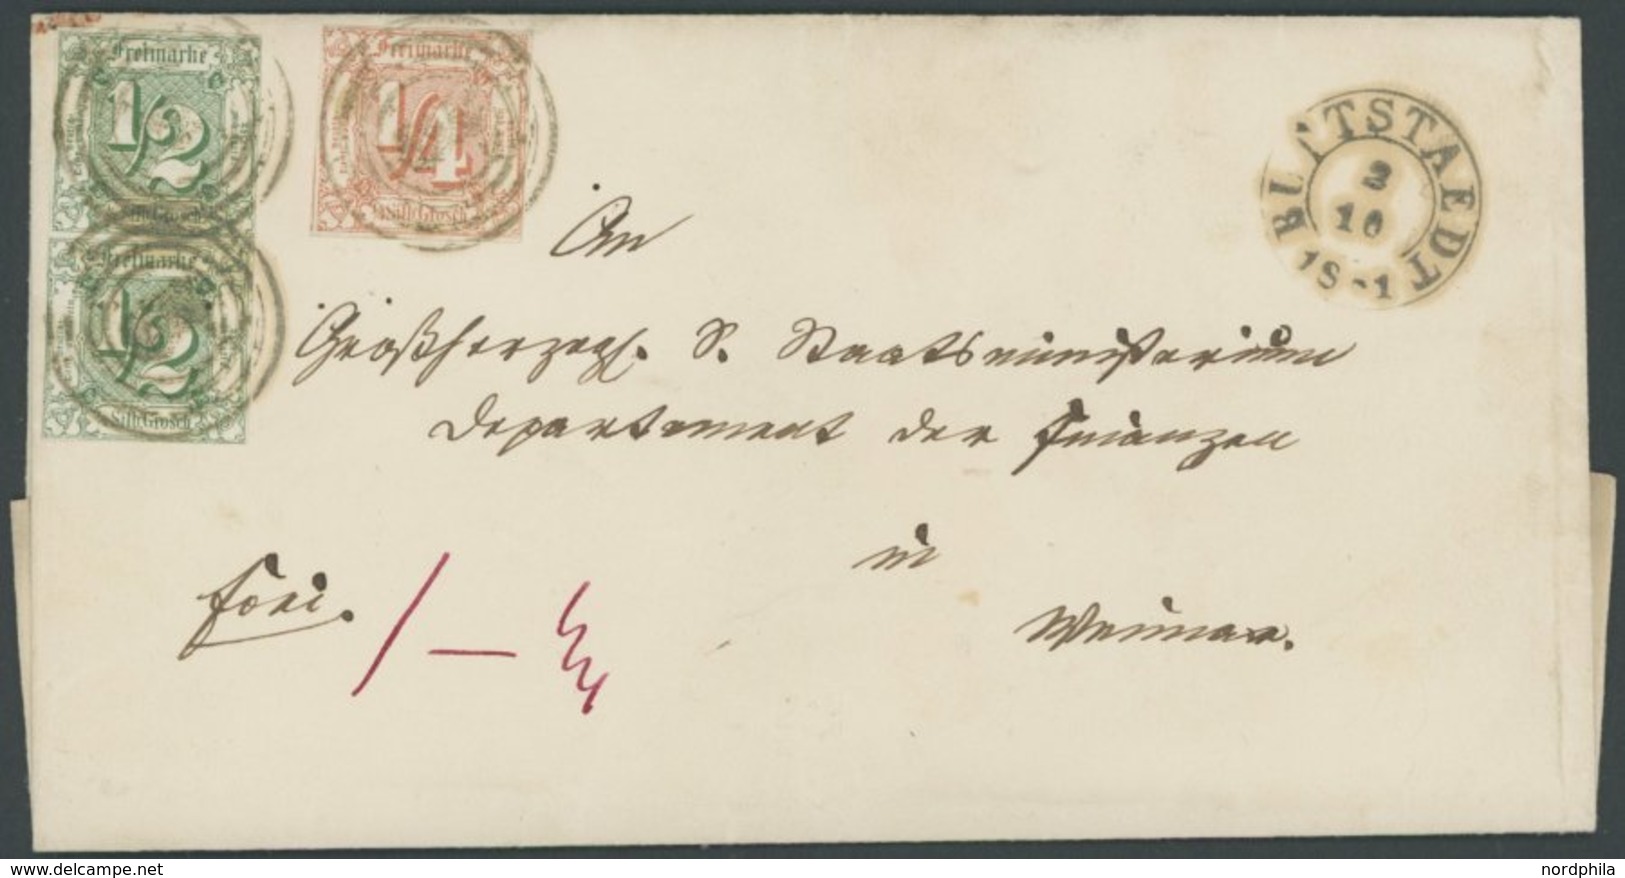 Freimarke
1/2
Silb. Grosch
Freimarke
1/2
Silb. Grosch
Freimarke
1/4
Silb. Grosch
BUTTSTAEDT
2
10
18-1
An
Großherzogl. S. Staatsministerium
Departement der Finanzen
in
Weimar.
frei.
nordphila